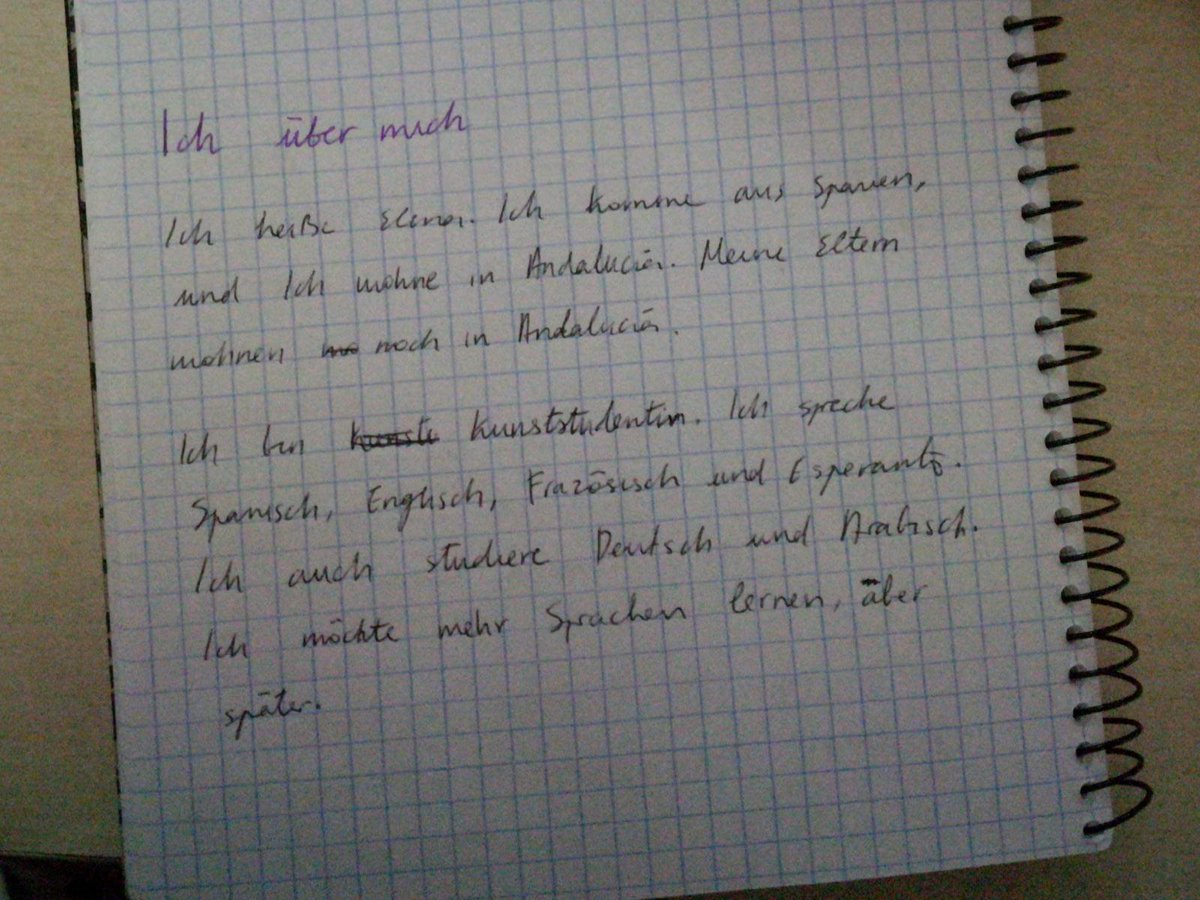 Ich über mich
Ich heiße Elena. Ich komme aus Spanien,
und Ich wohne in Andalucía. Meine Eltern
wohnen noch in Andalucía.
Ich bin Kunststudentin. Ich spreche
Spanisch, Englisch, Frazösisch und Esperanto.
Ich auch studiere Deutsch und Arabisch.
Ich möchte mehr Sprachen lernen, äber
später.